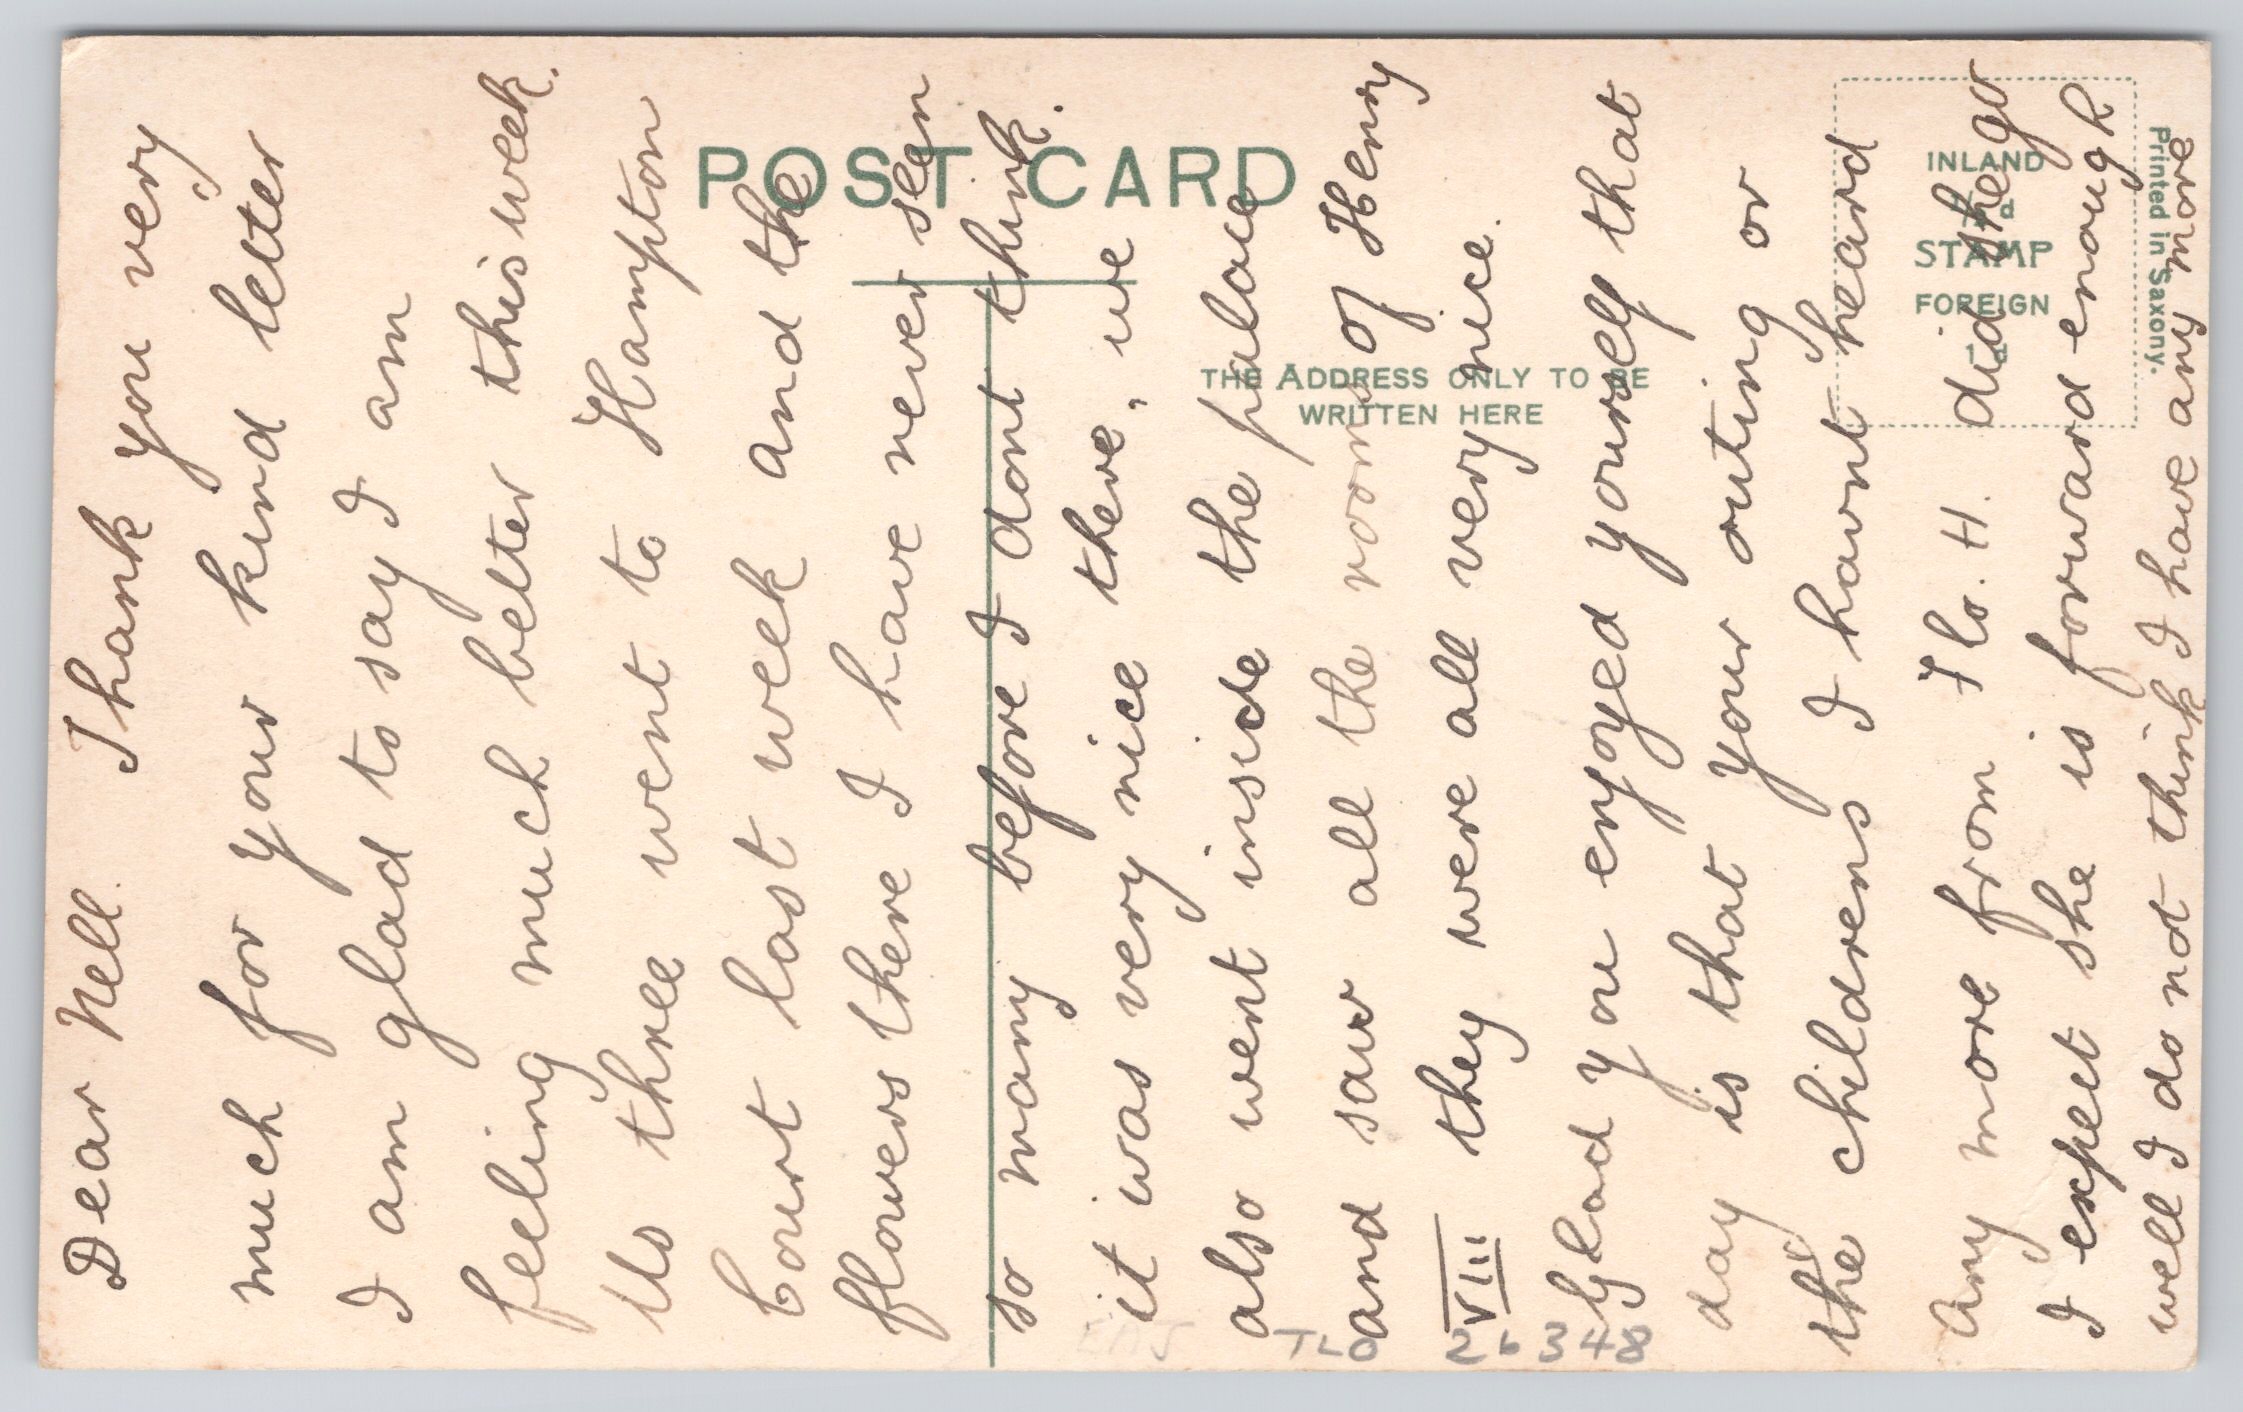 Dear Nell. Thank you very
much for your kind letter
I am glad to say I am
feeling much better this week.
Us three went to Hampton
Court last week and the
flowers there I have never seen
so many before I dont think.
it was very nice there, we
also went inside the palace
and saw all the rooms of Henry
VIII they were all very nice.
Glad you enjoyed yourself that
day is that your outing or
the childrens I havnt heard
any more from Flo. H. did she go
I expect she is forward enough
well I do not think I have any more
POST CARD
THE ADDRESS ONLY TO BE
WRITTEN HERE
INLAND
½d
STAMP
FOREIGN
1d
Printed in Saxony.
TLO 26348